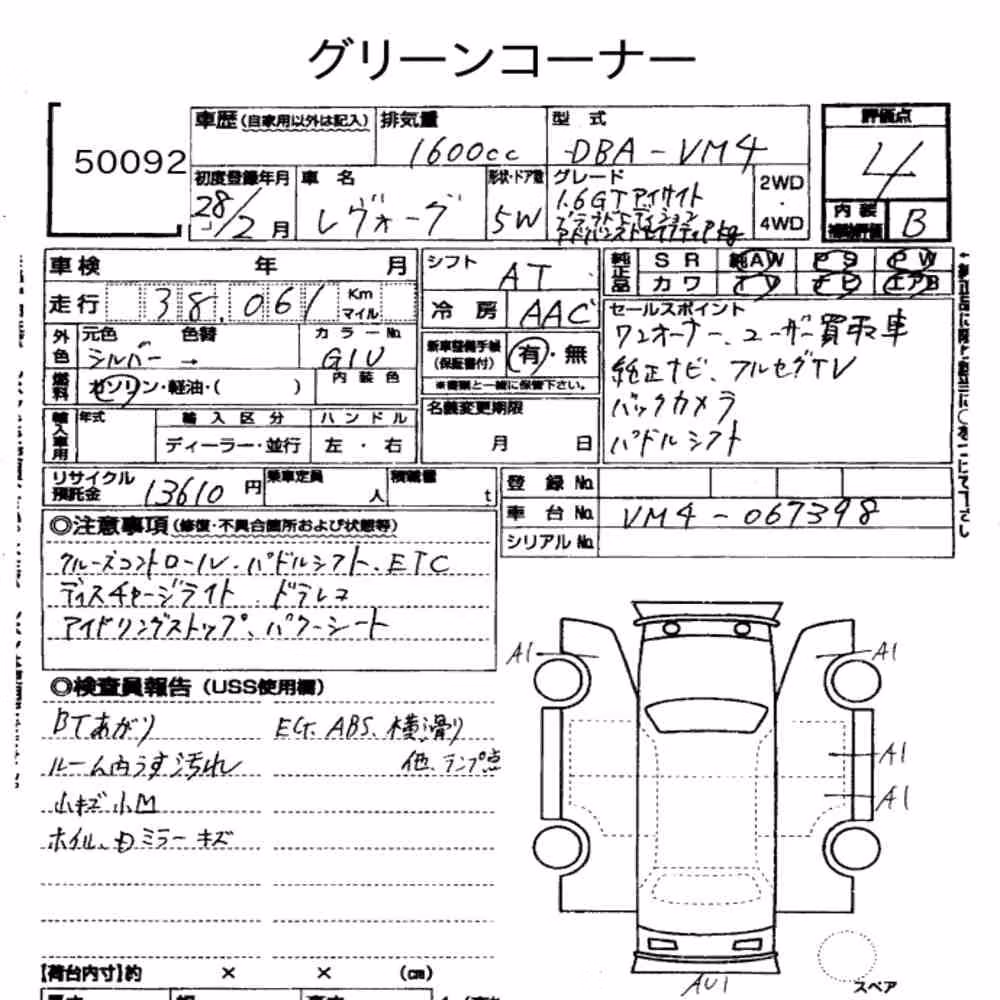 グリーンコーナー
50092
車歴(自家用以外は記入) 排気量 1600cc 型式 DBA-VM4
評価点 4
初度登録年月 28/2月 車名 レヴォーグ 形状・ドア数 5W グレード 1.6GTアイサイト
2WD・4WD
内装補助評価 B
車検 年 月
シフト AT
純正品 SR 純AW PS PW
カワ ナビ エアB
走行 38,061 Km マイル
冷房 AAC
セールスポイント
ワンオーナー、ユーザー買取車
純正ナビ、フルセグTV
バックカメラ
パドルシフト
外色 元色 シルバー 色替 → カラーNo. G1U
新車整備手帳(保証書付) 有・無
※書類と一緒に保管下さい。
燃料 ガソリン・軽油・( ) 内装色
名義変更期限 月 日
輸入車用 年式 輸入区分 ハンドル
ディーラー・並行 左・右
リサイクル預託金 13610円 乗車定員 人 積載量 t
登録No.
車台No. VM4-067398
シリアルNo.
◎注意事項(修復・不具合箇所および状態等)
クルーズコントロール.パドルシフト.ETC
ディスチャージライト ドラレコ
アイドリングストップ、パワーシート
◎検査員報告(USS使用欄)
BTあがり EG.ABS.横滑り
ルーム内うす汚れ 他、ランプ点
小キズ小凹
ホイル、ミラーキズ
A1 A1
A1
A1
AU1
スペア
【荷台内寸】約 × × (cm)